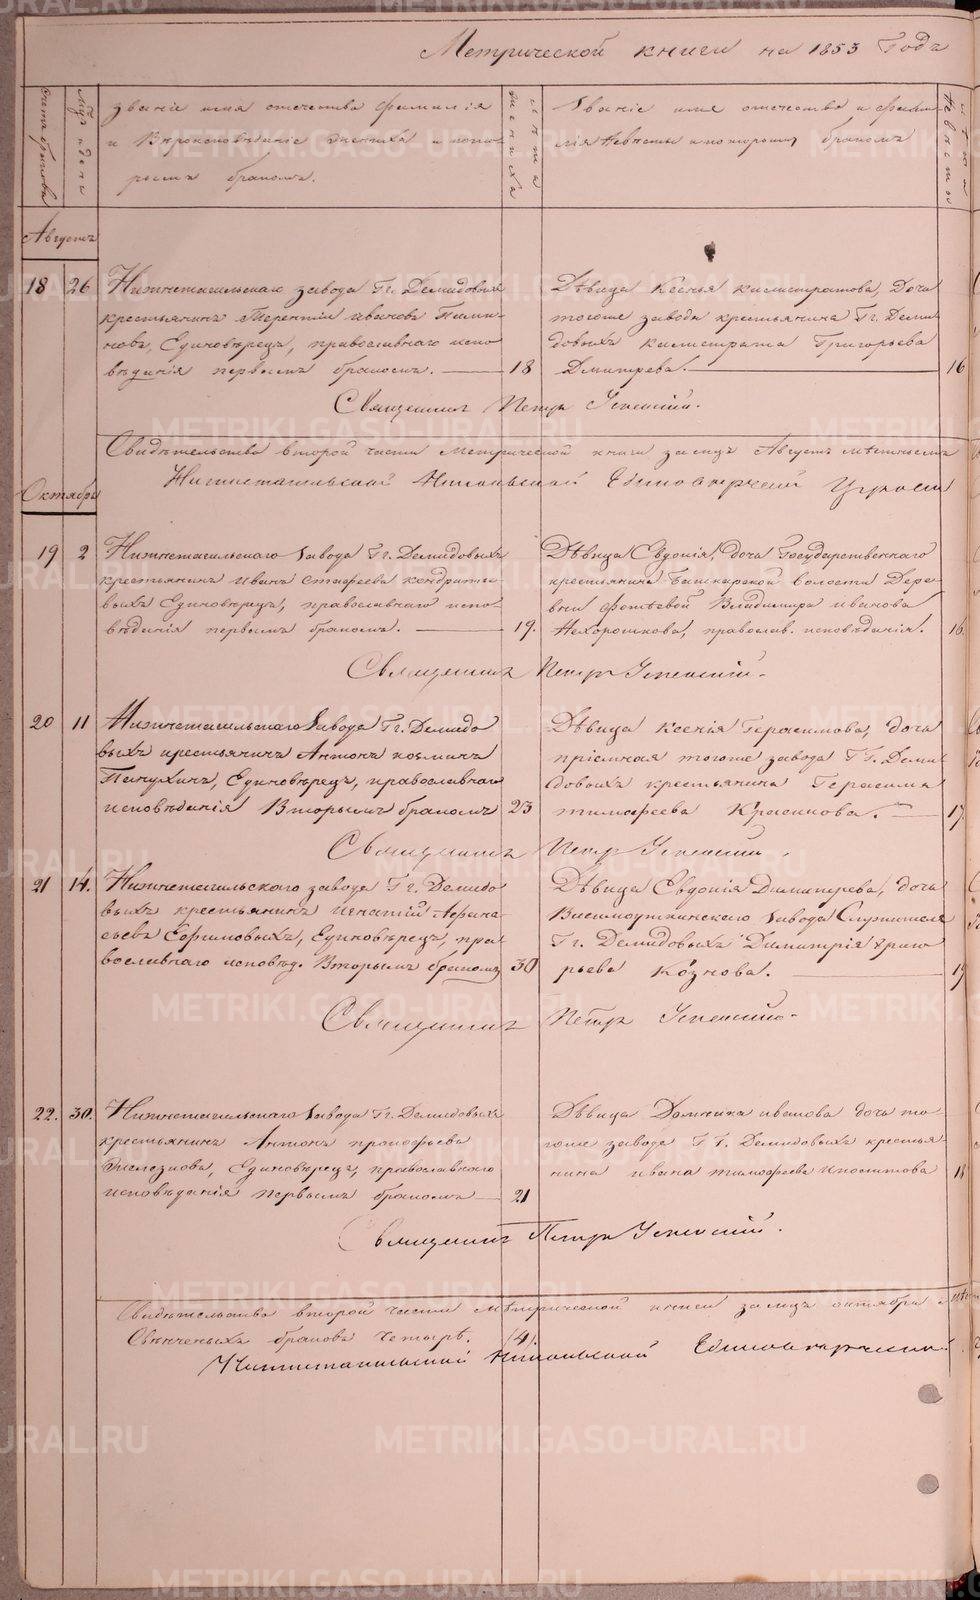 Метрической книги на 1853 Годъ
счетъ браковъ
Мѣс. и день
Званіе имя отечество фамилія
и Вѣроисповѣданіе жениха и кото-
рымъ бракомъ.
лѣта жениха
Званіе имя отечество и фами-
лія невѣсты и которымъ бракомъ
лѣта невѣсты
Августъ
18 26
Нижнетагильскаго завода Гг. Демидовыхъ
крестьянинъ Терентій Ивановъ
новъ, Единовѣрецъ, православнаго испо-
вѣданія первымъ бракомъ. 18
Дѣвица Ксенья Калистратова, Дочь
тогоже завода крестьянина Гг. Деми-
довыхъ Калистрата Григорьева
Дмитрева. 16
Священникъ Петръ Успенскій.
Свидѣтельство второй части метрической книги за мцъ Августъ мѣстнымъ
Нижнетагильской Никольской Единовѣрческой Церкви
Октябрь
19 2
Нижнетагильскаго Завода Гг. Демидовыхъ
крестьянинъ Иванъ Стафеевъ Кондрать-
выхъ Единовѣрецъ, православнаго испо-
вѣданія первымъ бракомъ. 19.
Дѣвица Евдокія, дочь Государственнаго
крестьянина Башкарской волости Дере-
вни Фотѣевой Владимира Иванова
Нехорошкова, православ. исповѣданія. 16.
Священникъ Петръ Успенскій.
20 11
Нижнетагильскаго Завода Гг. Демидо
выхъ крестьянинъ Антонъ Козминъ
Пичугинъ, Единовѣрецъ, православнаго
исповѣданія Вторымъ бракомъ 23
Дѣвица Ксенія Герасимова, дочь
пріемная тогоже завода ГГ. Деми-
довыхъ крестьянина Герасима
тимофеева Красикова. 17
Священникъ Петръ Успенскій.
21 14.
Нижнетагильскаго завода Гг. Демидо
выхъ крестьянинъ Игнатій Афана-
сьевъ Ефимовыхъ, Единовѣрецъ, пра-
вославнаго исповѣд. Вторымъ бракомъ 30
Дѣвица Евдокія Димитрева, дочь
Висимоуткинскаго Завода Служителя
Гг. Демидовыхъ Димитрія Григо
рьева Кознова. 19
Священникъ Петръ Успенскій.
22. 30.
Нижнетагильскаго Завода Гг. Демидовыхъ
крестьянинъ Антонъ прокофьева
Железкова, Единовѣрецъ, православнаго
исповѣданія первымъ бракомъ 21
Дѣвица Домника Иванова дочь то-
гоже завода ГГ. Демидовыхъ крестья-
нина Ивана тимофеева Ипокитова 18
Священникъ Петръ Успенскій.
Свидѣтельство второй части Метрической книги за мцъ октябрь
Свѣнченыхъ браковъ Четыре. (4).
Нижнетагильской Никольской Единовѣрческой
METRIKI.GASO-URAL.RU